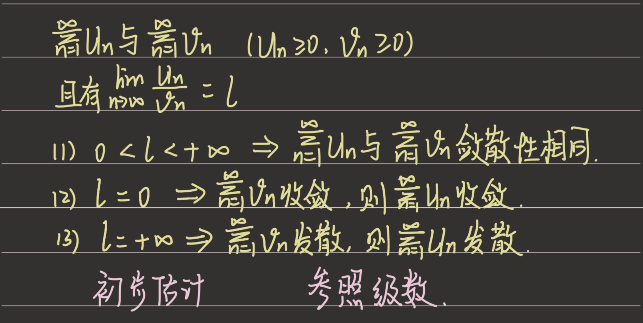 ∞∑n=1 Un 与 ∞∑n=1 Vn (Un≥0, Vn≥0)
且有 lim n→∞ Un/Vn = l
(1) 0 < l < +∞ ⇒ ∞∑n=1 Un 与 ∞∑n=1 Vn 敛散性相同.
(2) l = 0 ⇒ ∞∑n=1 Vn 收敛, 则 ∞∑n=1 Un 收敛.
(3) l = +∞ ⇒ ∞∑n=1 Vn 发散, 则 ∞∑n=1 Un 发散.
初步估计 参照级数.